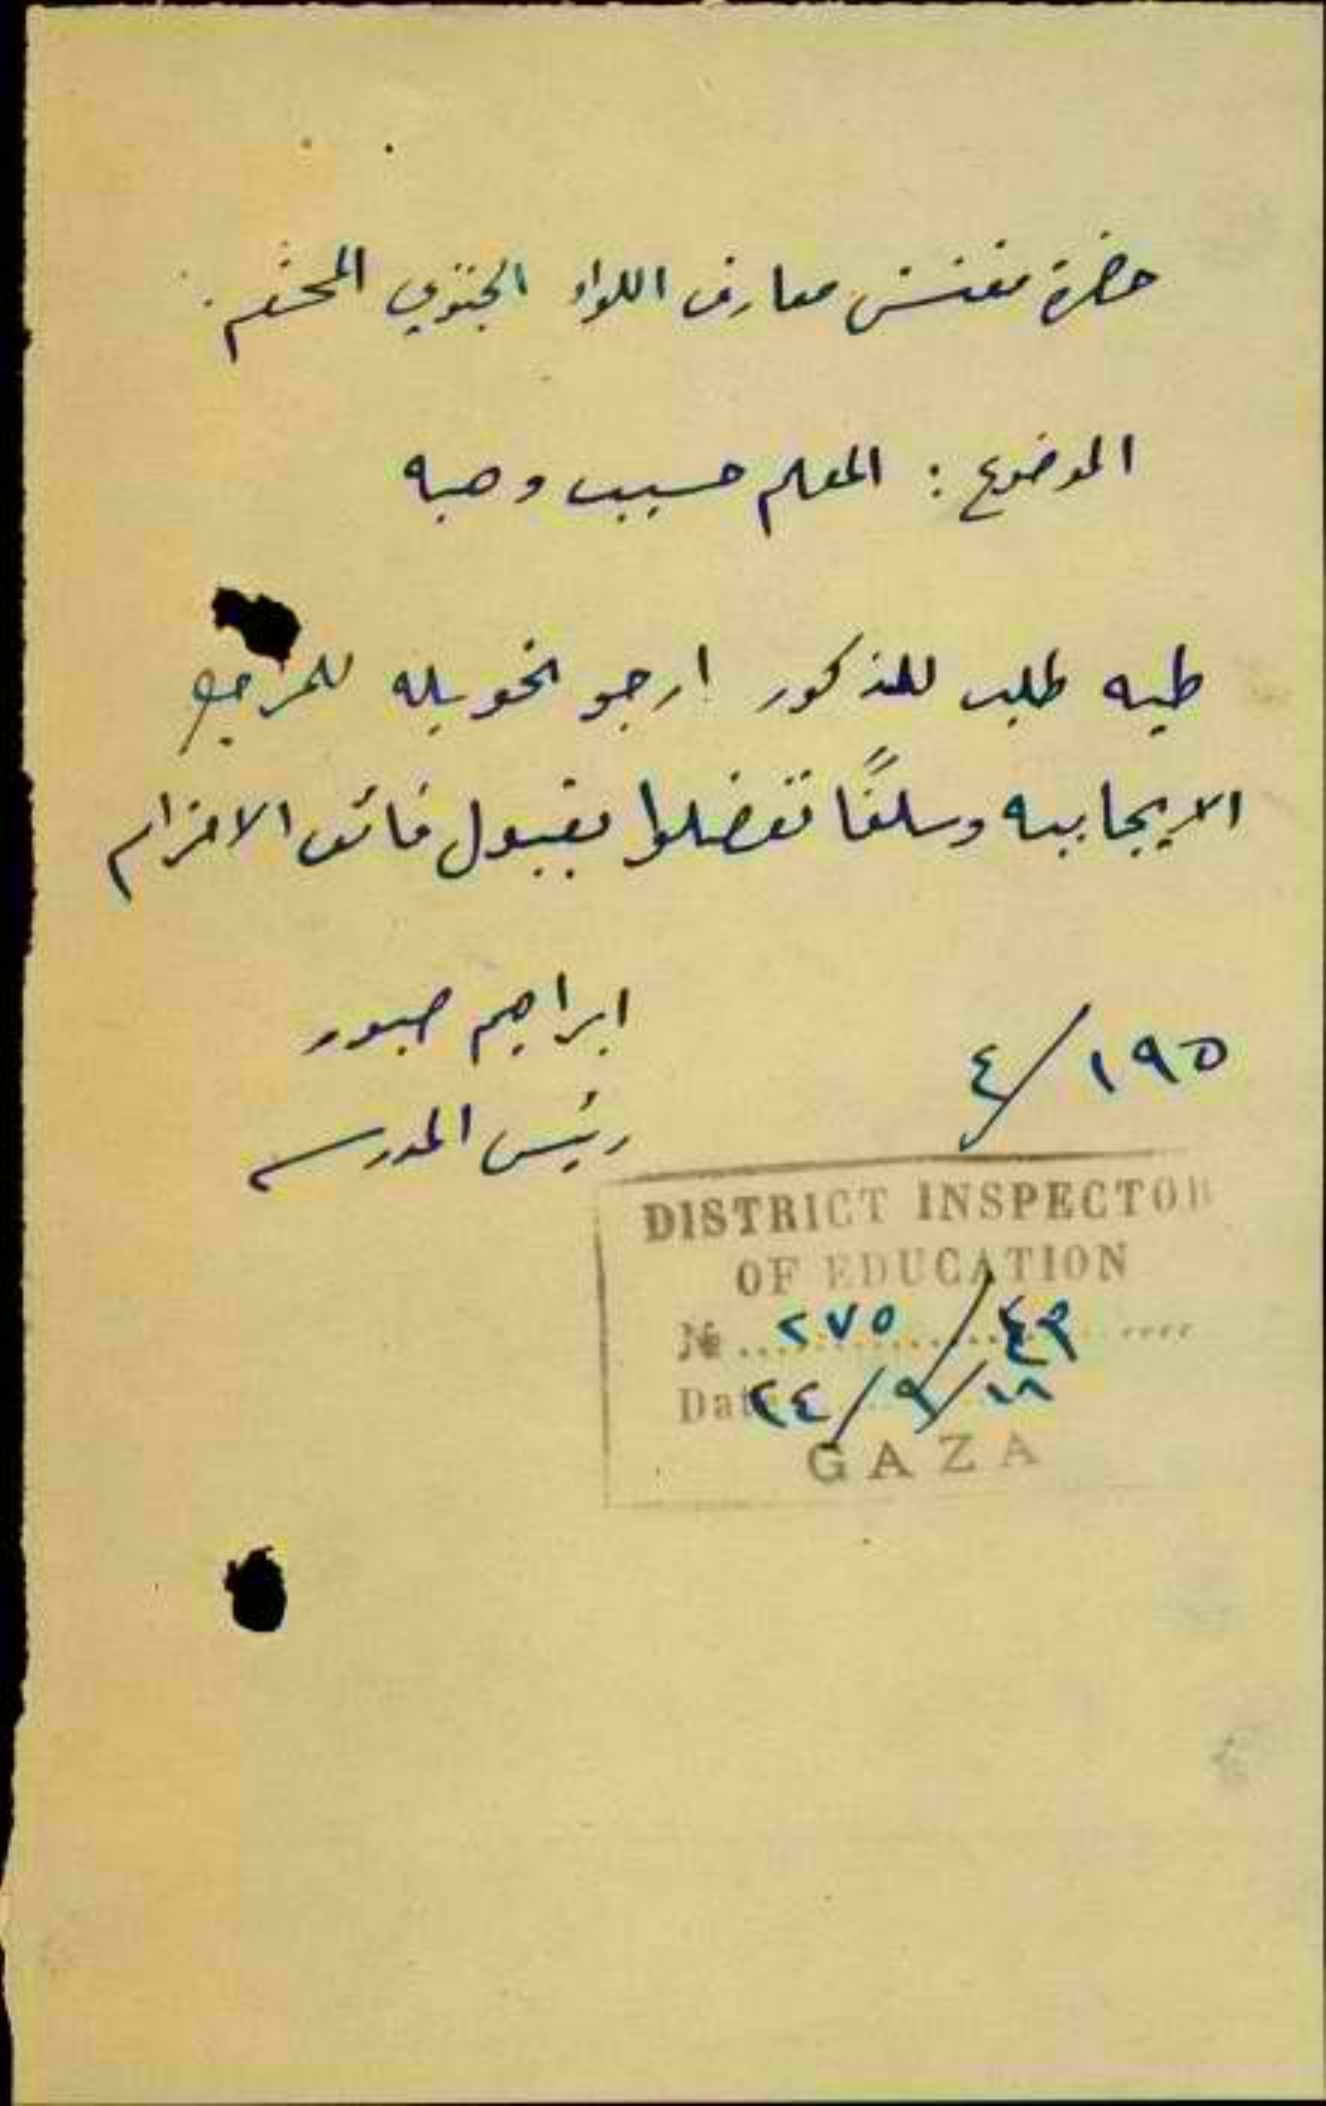 حضرة مفتش معارف اللواء الجنوبي المحترم.
الموضوع : المعلم حسيب وهبه
طيه طلب للمذكور ارجو تحويله للمراجع
الايجابيه وسلفًا تفضلوا بقبول فائق الاحترام
ابراهيم صبور
رئيس المدرسه
٤/١٩٥
DISTRICT INSPECTOR
OF EDUCATION
№ ٢٧٥/٤٩
Date ٢٤/٩/١٨
GAZA